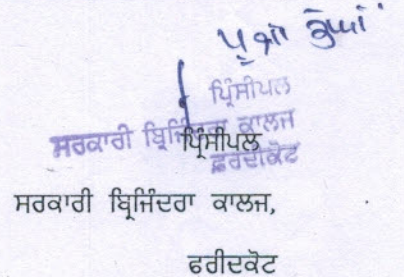 ਪ੍ਰਿੰਸੀਪਲ
ਸਰਕਾਰੀ ਬ੍ਰਿਜਿੰਦਰਾ ਕਾਲਜ
ਫ਼ਰੀਦਕੋਟ
ਪ੍ਰਿੰਸੀਪਲ
ਸਰਕਾਰੀ ਬ੍ਰਿਜਿੰਦਰਾ ਕਾਲਜ,
ਫਰੀਦਕੋਟ